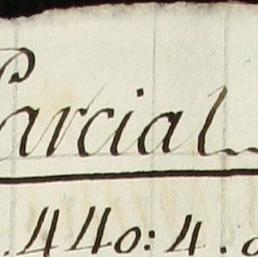 Parcial
.440:4.